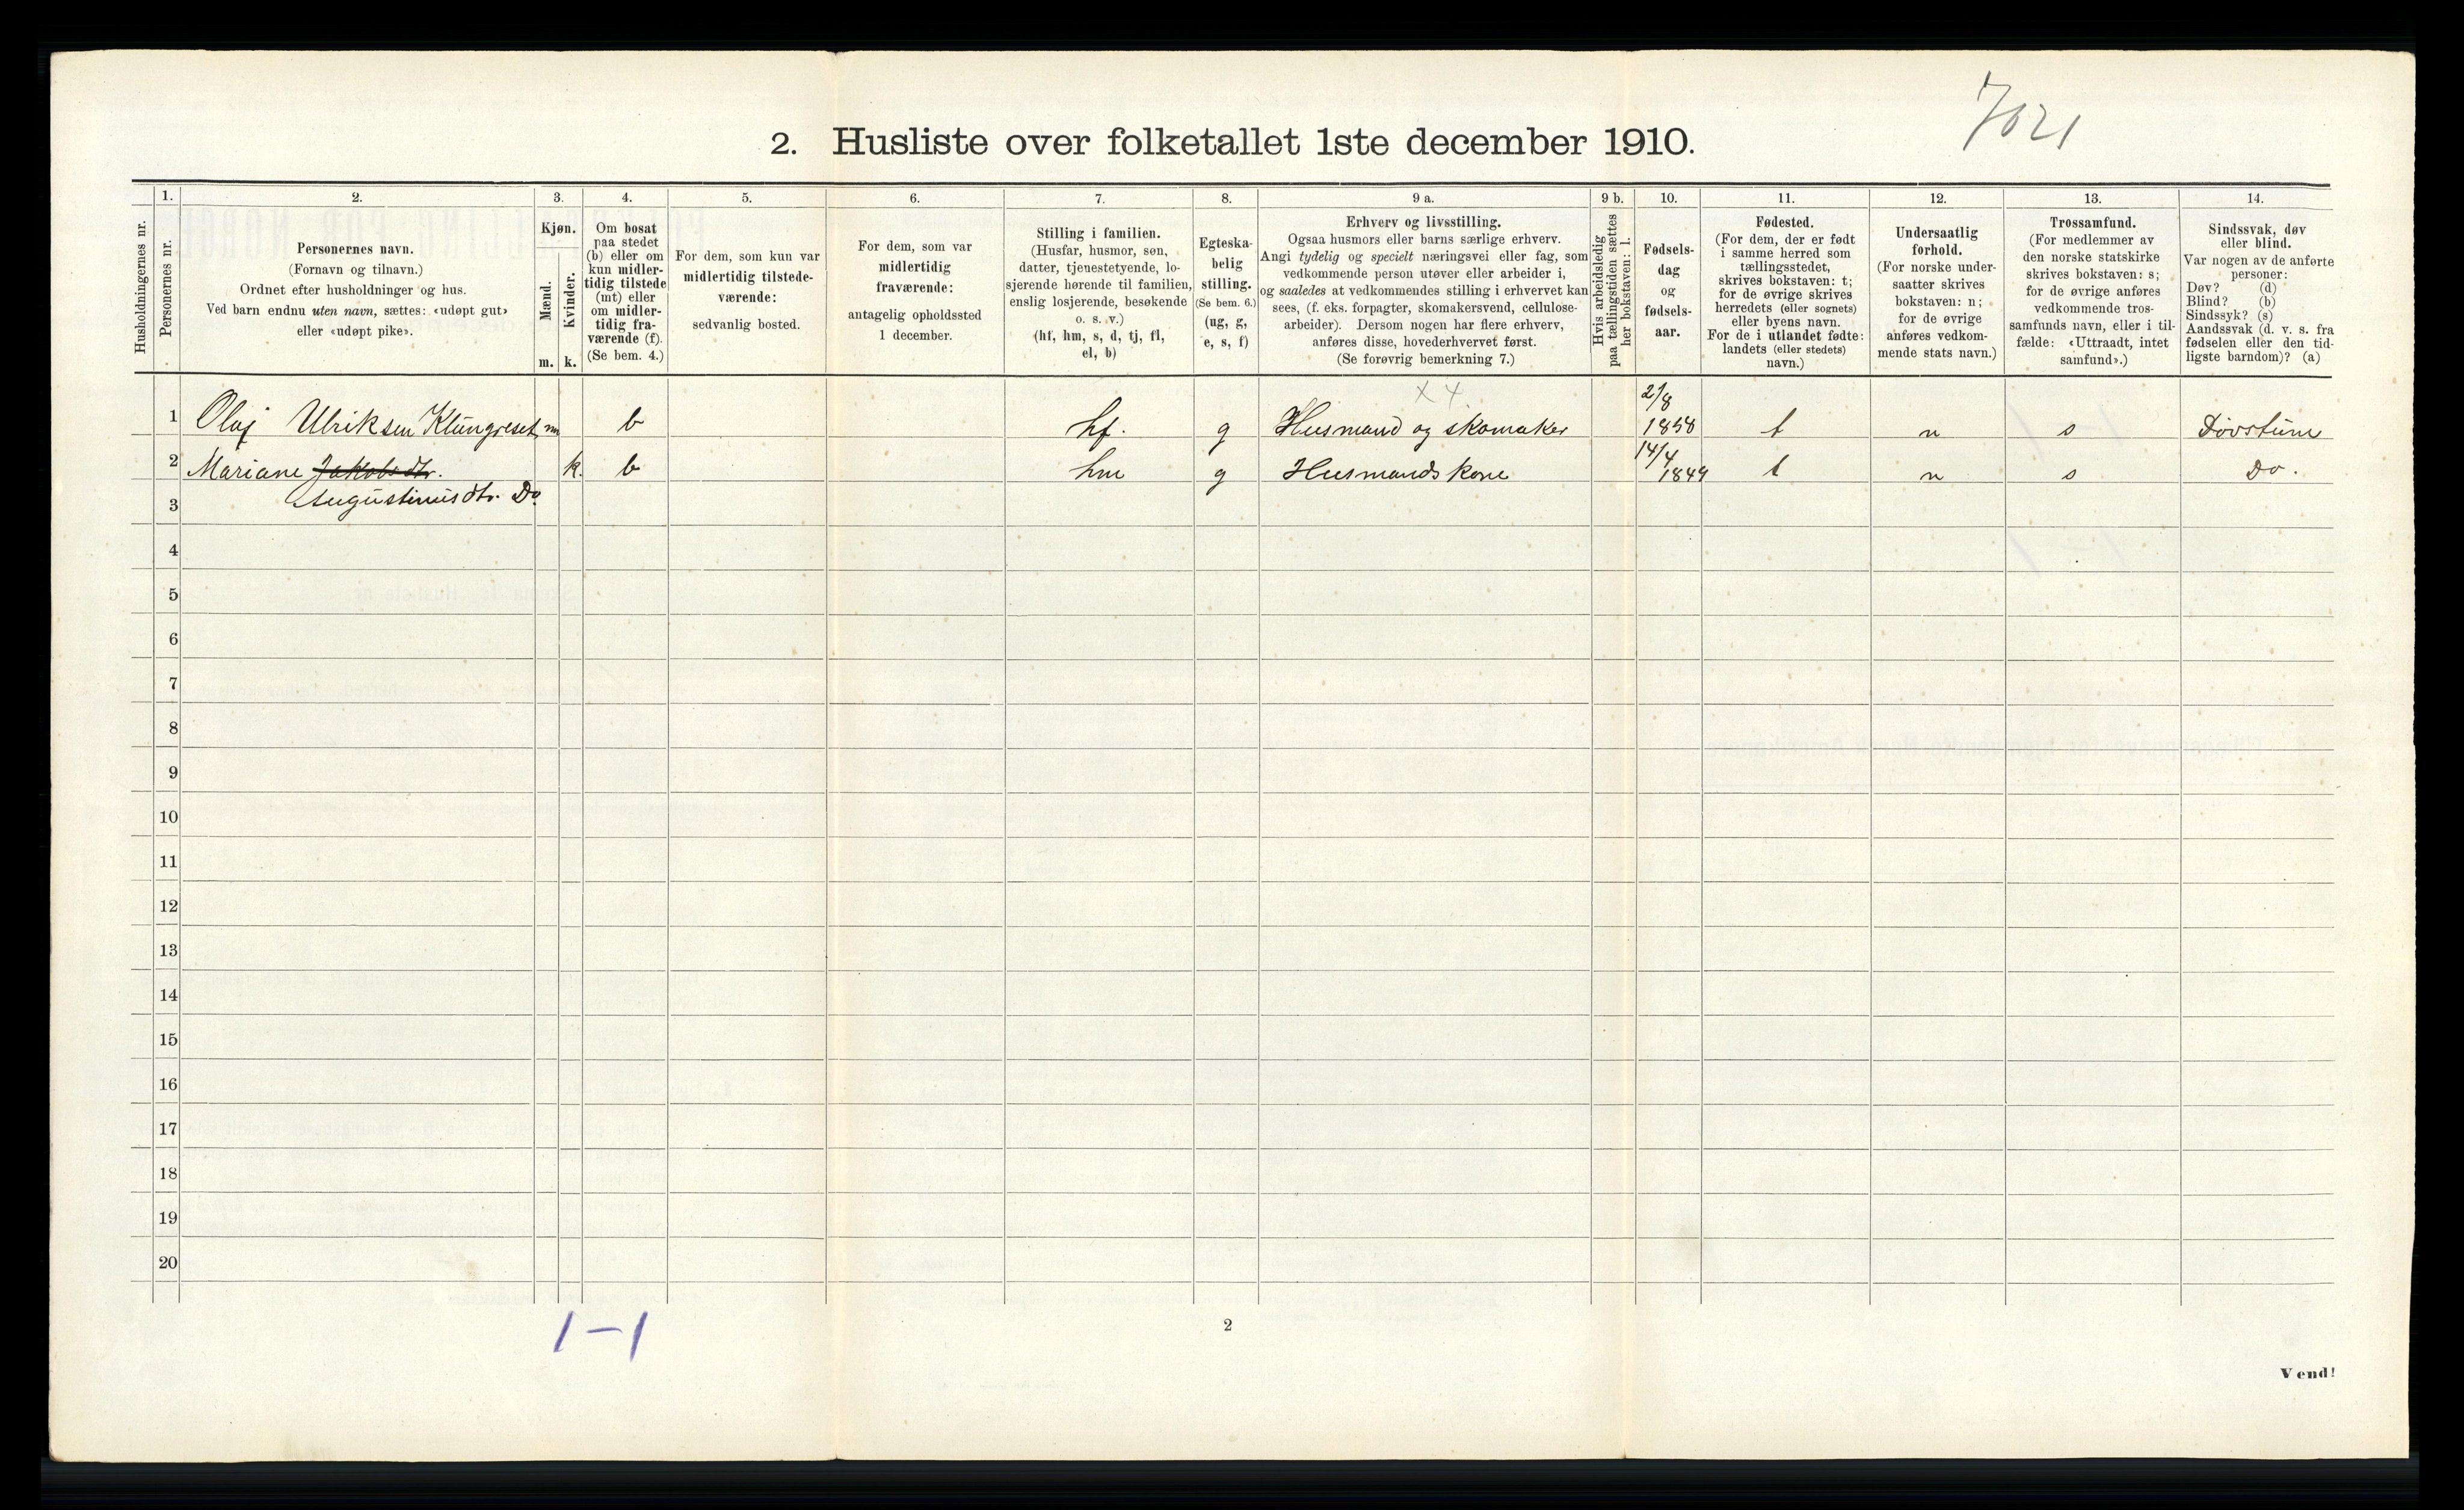 7021
2. Husliste over folketallet 1ste december 1910.
Husholdningernes nr.
1.
Personernes nr.
2.
Personernes navn.
(Fornavn og tilnavn.)
Ordnet efter husholdninger og hus.
Ved barn endnu uten navn, sættes: «udøpt gut»
eller «udøpt pike».
3.
Kjøn.
Mænd.
m.
Kvinder.
k.
4.
Om bosat
paa stedet
(b) eller om
kun midler-
tidig tilstede
(mt) eller
om midler-
tidig fra-
værende (f).
(Se bem. 4.)
5.
For dem, som kun var
midlertidig tilstede-
værende:
sedvanlig bosted.
6.
For dem, som var
midlertidig
fraværende:
antagelig opholdssted
1 december.
7.
Stilling i familien.
(Husfar, husmor, søn,
datter, tjenestetyende, lo-
sjerende hørende til familien,
enslig losjerende, besøkende
o. s. v.)
(hf, hm, s, d, tj, fl,
el, b)
8.
Egteska-
belig
stilling.
(Se bem. 6.)
(ug, g,
e, s, f)
9 a.
Erhverv og livsstilling.
Ogsaa husmors eller barns særlige erhverv.
Angi tydelig og specielt næringsvei eller fag, som
vedkommende person utøver eller arbeider i,
og saaledes at vedkommendes stilling i erhvervet kan
sees, (f. eks. forpagter, skomakersvend, cellulose-
arbeider). Dersom nogen har flere erhverv,
anføres disse, hovederhvervet først.
(Se forøvrig bemerkning 7.)
9 b.
Hvis arbeidsledig
paa tællingstiden sættes
her bokstaven: l.
10.
Fødsels-
dag
og
fødsels-
aar.
11.
Fødested.
(For dem, der er født
i samme herred som
tællingsstedet,
skrives bokstaven: t;
for de øvrige skrives
herredets (eller sognets)
eller byens navn.
For de i utlandet fødte:
landets (eller stedets)
navn.)
12.
Undersaatlig
forhold.
(For norske under-
saatter skrives
bokstaven: n;
for de øvrige
anføres vedkom-
mende stats navn.)
13.
Trossamfund.
(For medlemmer av
den norske statskirke
skrives bokstaven: s;
for de øvrige anføres
vedkommende tros-
samfunds navn, eller i til-
fælde: «Uttraadt, intet
samfund».)
14.
Sindssvak, døv
eller blind.
Var nogen av de anførte
personer:
Døv? (d)
Blind? (b)
Sindssyk? (s)
Aandssvak (d. v. s. fra
fødselen eller den tid-
ligste barndom)? (a)
x 4
1 Olaf Ulriksen Klungreset m b hf. g Husmand og skomaker 2/8 1858 t n s Døvstum
2 Mariane Jakobsdtr. k. b hm g Husmandskone 14/4 1849 t n s Do.
3 Augustinusdtr. Do.
4
5
6
7
8
9
10
11
12
13
14
15
16
17
18
19
20
1–1
2
Vend!